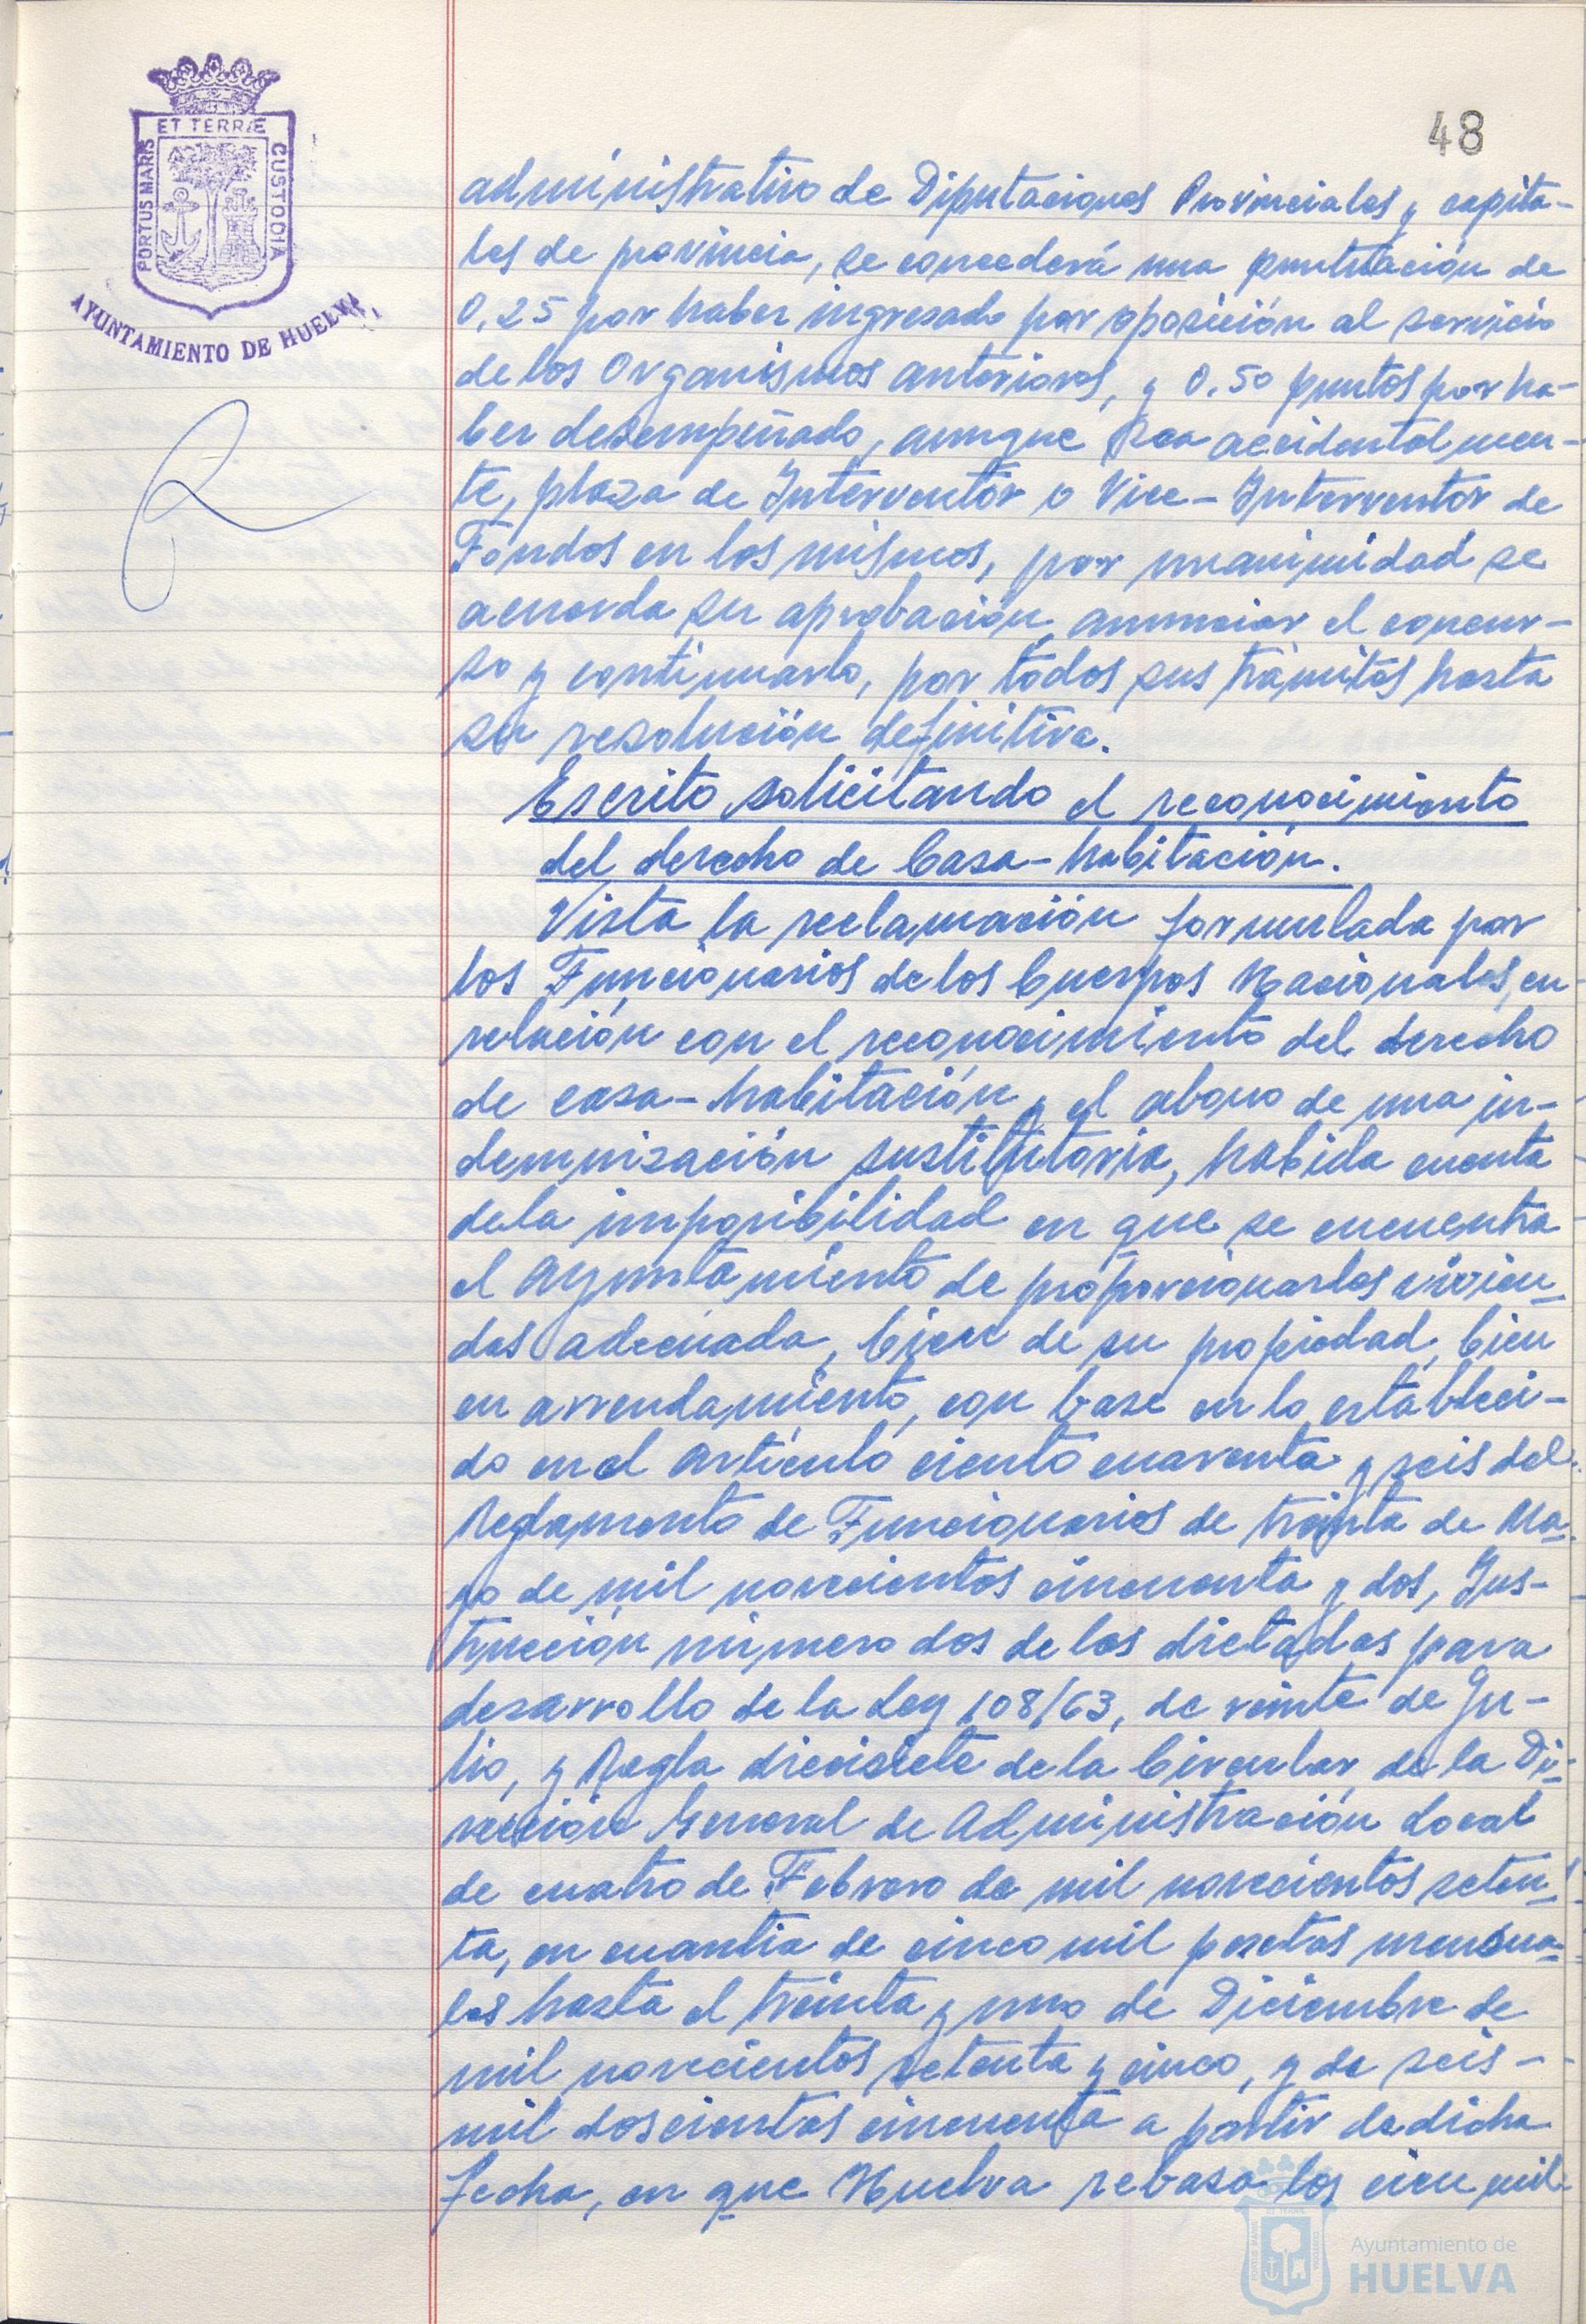 48
ET TERRÆ
PORTUS MARIS
CUSTODIA
AYUNTAMIENTO DE HUELVA
administrativo de Diputaciones Provinciales y capita-
les de provincia, se concederá una puntuación de
0,25 por haber ingresado por oposición al servicio
de los Organismos anteriores, y 0,50 puntos por ha-
ber desempeñado, aunque sea accidentalmen-
te, plaza de Interventor o Vice-Interventor de
Fondos en los mismos, por unanimidad se
acuerda su aprobación, anunciar el concur-
so y continuarlo, por todos sus trámites hasta
su resolución definitiva.
Escrito solicitando el reconocimiento
del derecho de Casa-habitación.
Vista la reclamación formulada por
los Funcionarios de los Cuerpos Nacionales, en
relación con el reconocimiento del derecho
de casa-habitación y el abono de una in-
demnización sustitutoria, habida cuenta
de la imposibilidad en que se encuentra
el Ayuntamiento de proporcionarles vivien-
das adecuada, bien de su propiedad, bien
en arrendamiento, con base en lo estableci-
do en el artículo ciento cuarenta y seis del
Reglamento de Funcionarios de treinta de Ma-
yo de mil novecientos cincuenta y dos, Ins-
trucción número dos de las dictadas para
desarrollo de la Ley 108/63, de veinte de Ju-
lio, y Regla diecisiete de la Circular de la Di-
rección General de Administración Local
de cuatro de Febrero de mil novecientos seten-
ta, en cuantía de cinco mil pesetas mensua-
les hasta el treinta y uno de Diciembre de
mil novecientos setenta y cinco, y de seis-
mil doscientas cincuenta a partir de dicha
fecha, en que Huelva rebasa los cien mil
Ayuntamiento de
HUELVA